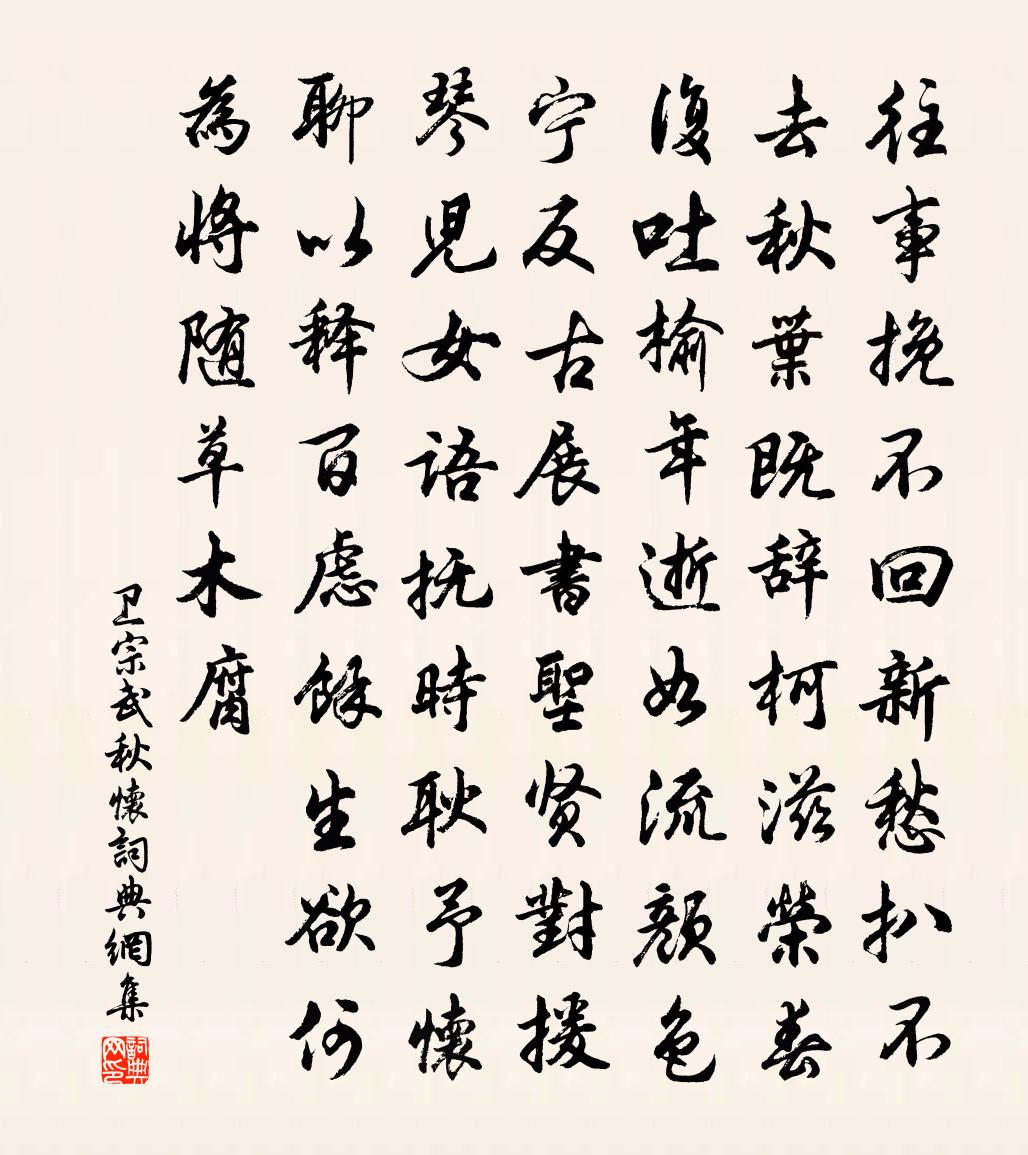 往事挽不回新愁扒不
去秋葉既辞柯滋榮春
復吐榆年逝如流顔色
宁反古展書聖贤對援
琴児女語抚時耿予懷
聊以释百慮餘生欲何
為将随草木腐
卫宗武秋懷詞典網集
詞典网印